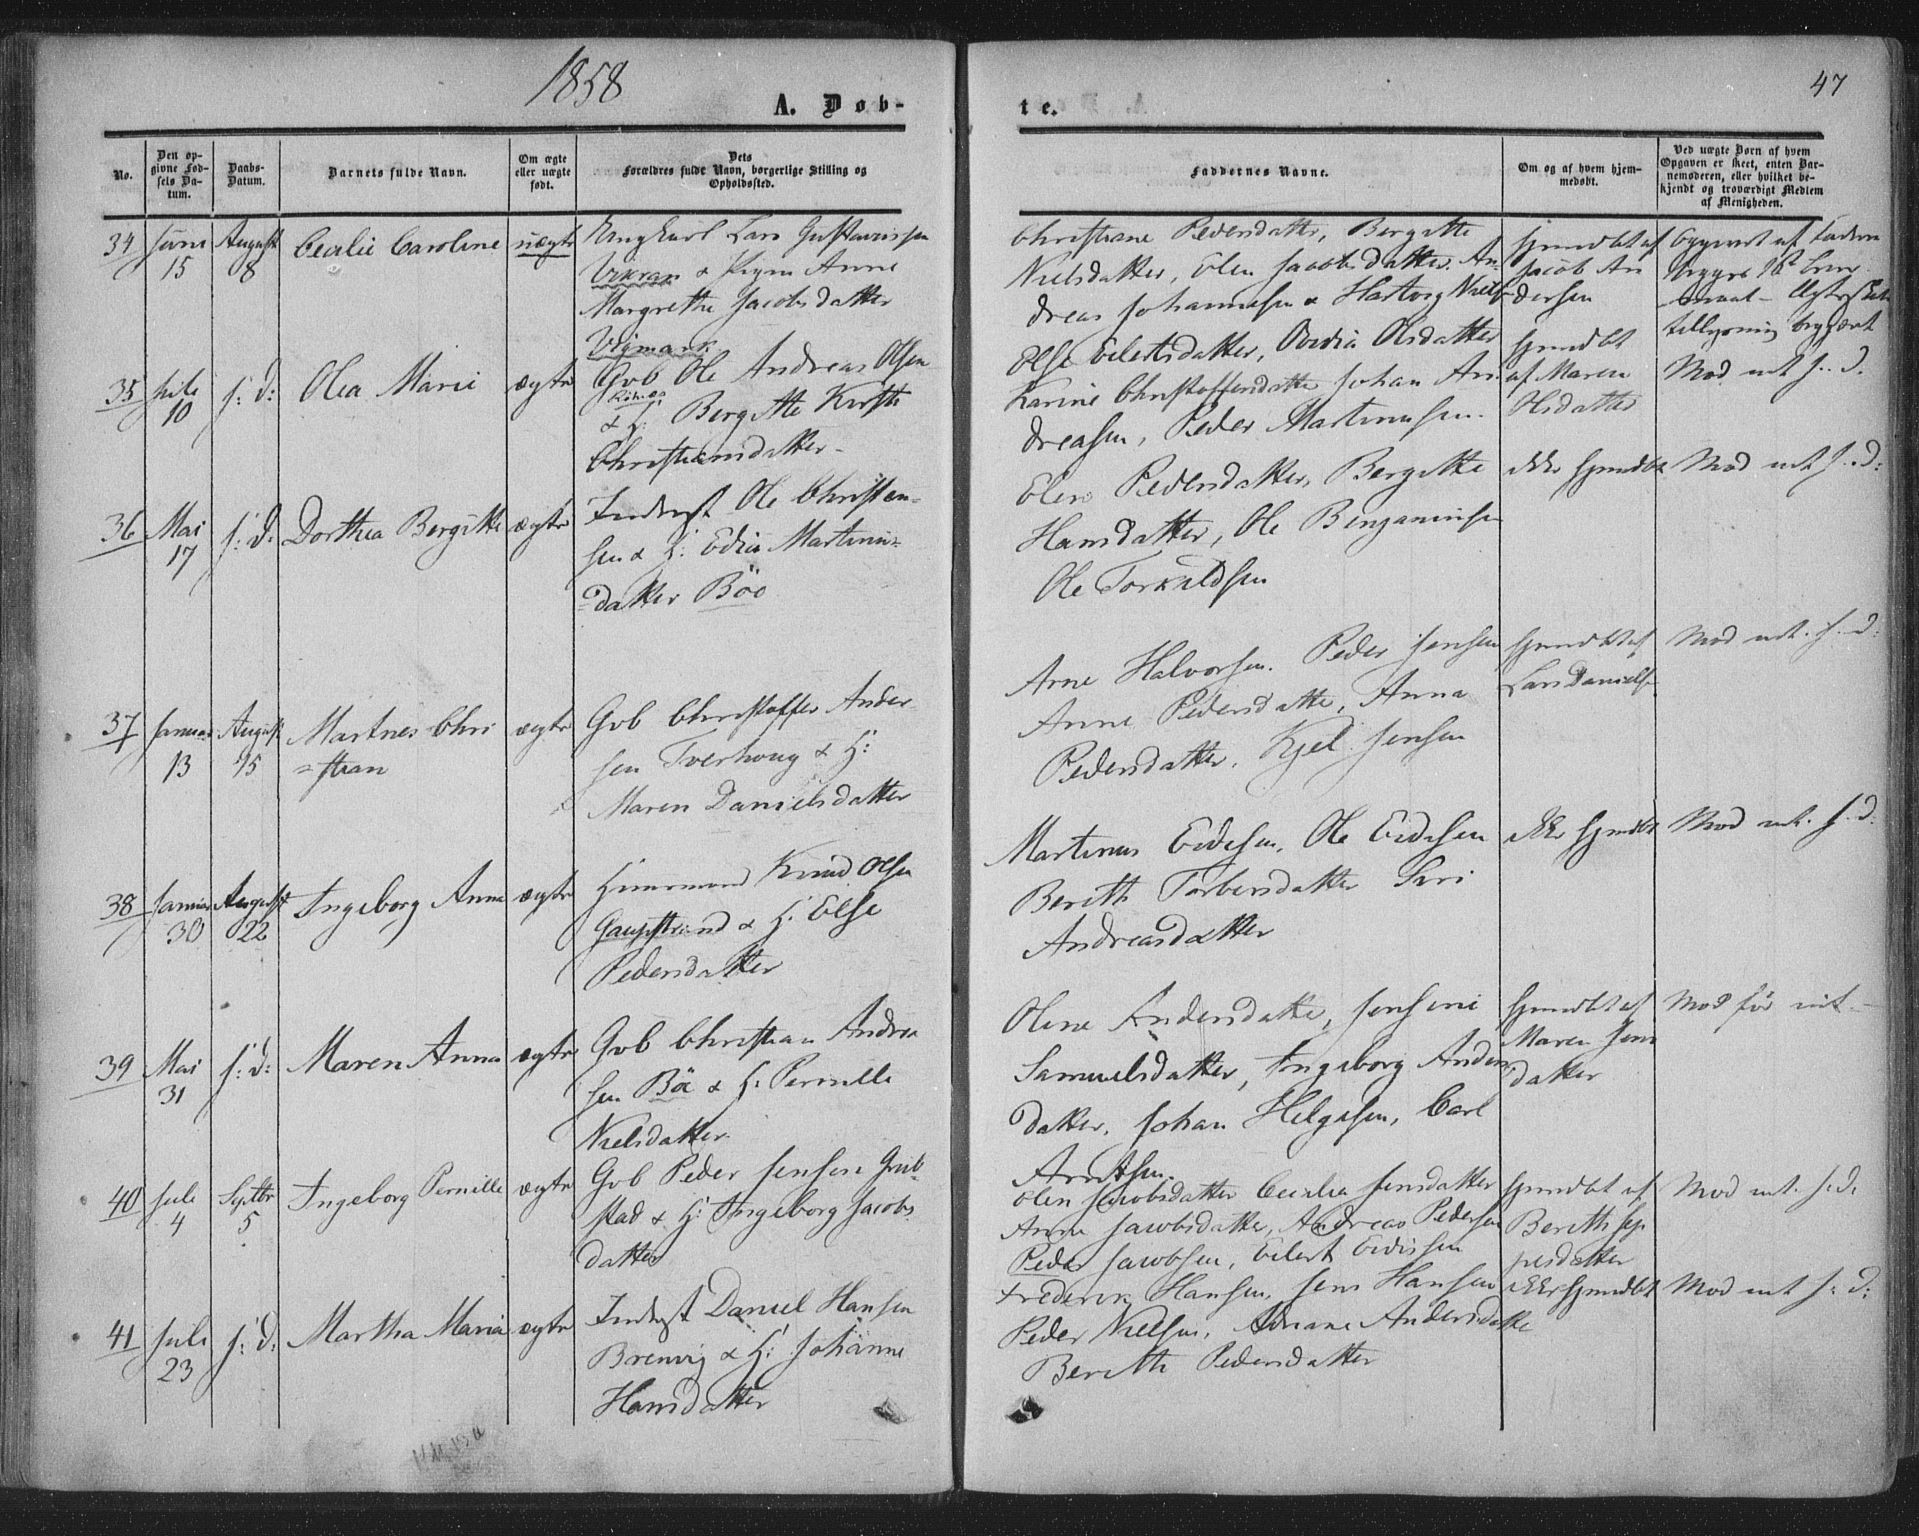 1858
A. Døb-
te.
47
No.
Den op-
givne Fød-
sels Da-
tum.
Daabs-
Datum.
Barnets fulde Navn.
Om ægte
eller uægte
født.
Dets
Forældres fulde Navn, borgerlige Stilling og
Opholdssted.
Faddernes Navne.
Om og af hvem hjem-
medøbt.
Ved uægte Børn af hvem
Opgaven er skeet, enten Bar-
nemoderen, eller hvilket be-
kjendt og troværdigt Medlem
af Menigheden.
34
Juni
15
August
8
Cecilie Caroline
uægte
Ungkarl Lars Gustavussen
Vikran & Pigen Anne
Margrethe Jacobsdatter
Vigmark
Christiane Pedersdatter, Bergitte
Nielsdatter, Elen Jacobsdatter, An-
dreas Johannesen & Hartvig Niels
hjemdøbt af
Jacob An
dersen
opgivet af Faderen
35
Juli
10
s: d:
Olea Marie
ægte
Gvb Ole Andreas Olsen
& H: Bergitte Kirsti
Christiansdatter
Else Eilertsdatter, Ovedia Olsdatter
Karine Christoffersdatter Johan An
dreasen, Peder Martinussen
hjemdøbt
af Maren
Olsdatter
Mod. int. s. d.
36
Mai
17
s: d:
Dorthea Bergitte
ægte
Inderst Ole Christen-
sen & H: Edia Martinus-
datter Böe
Elen Pedersdatter, Bergitte
Hansdatter, Ole Benjaminsen
Ole Torkildsen
ikke hjemdøbt
Mod. int. s. d:
37
Januar
13
August
15
Martnes Chri
=stian
ægte
Gvb Christoffer Ander
sen Tverhoug & H:
Maren Danielsdatter
Arne Halvorsen. Peder Jensen
Anne Pedersdatter, Anna
Pedersdatter, Kjel Jensen
hjemdøbt af
Lars Daniels
Mod int. s. d:
38
Januar
30
August
22
Ingeborg Anna
ægte
Huusmand Knud Olsen
Gaupstrand & H: Else
Pedersdatter
Martinus Eidesen, Ole Eidesen
Bereth Torbersdatter Siri
Andreasdatter
ikke hjemdøbt
Mod int. s. d.
39
Mai
31
s: d:
Maren Anna
ægte
Gvb Christian Andrea
sen Böe & H: Pernille
Nielsdatter
Oline Andersdatter, Jensine
Samuelsdatter, Ingeborg Anders
datter, Johan Helgesen, Carl
Arntsen
hjemdøbt af
Maren Jens
datter
Mod för int.
40
Juli
4
Septbr
5
Ingeborg Pernille
ægte
Gvb Peder Jensen Grub
stad & H: Ingeborg Jacobs
datter
Olen Jacobsdatter Cecilia Jensdatter
Anne Jacobsdatter, Andreas Pedersen
Peder Jacobsen, Eilert Eidissen
hjemdøbt af
Bereth Jep
pesdatter
Mod int. s. d.
41
Juli
23
s: d:
Martha Maria
ægte
Inderst Daniel Hansen
Brenvig & H: Johanne
Hansdatter
Frederik Hansen, Jens Hansen
Peder Nielsen, Adriane Andersdatter
Bereth Pedersdatter
ikke hjemdøbt
Mod int s: d: